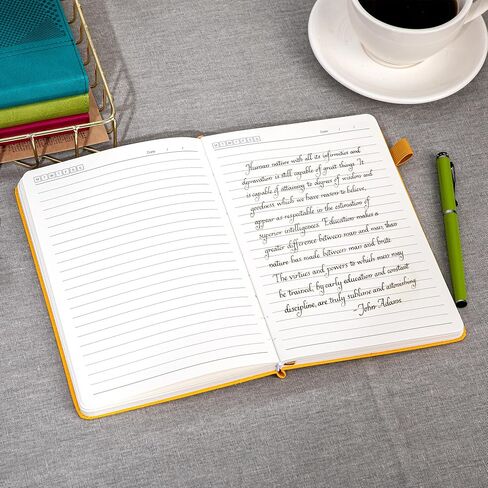 Date / /
M T W T F S S
Date / /
M T W T F S S
Human nature with all its infirmities and
depravation is still capable of great things. It
is capable of attaining to degrees of wisdom and
goodness which we have reason to believe,
appear as respectable in the estimation of
superior intelligences. Education makes a
greater difference between man and man, than
nature has made between man and brute
The virtues and powers to which men may
be trained, by early education and constant
discipline, are truly sublime and astonishing
- John Adams